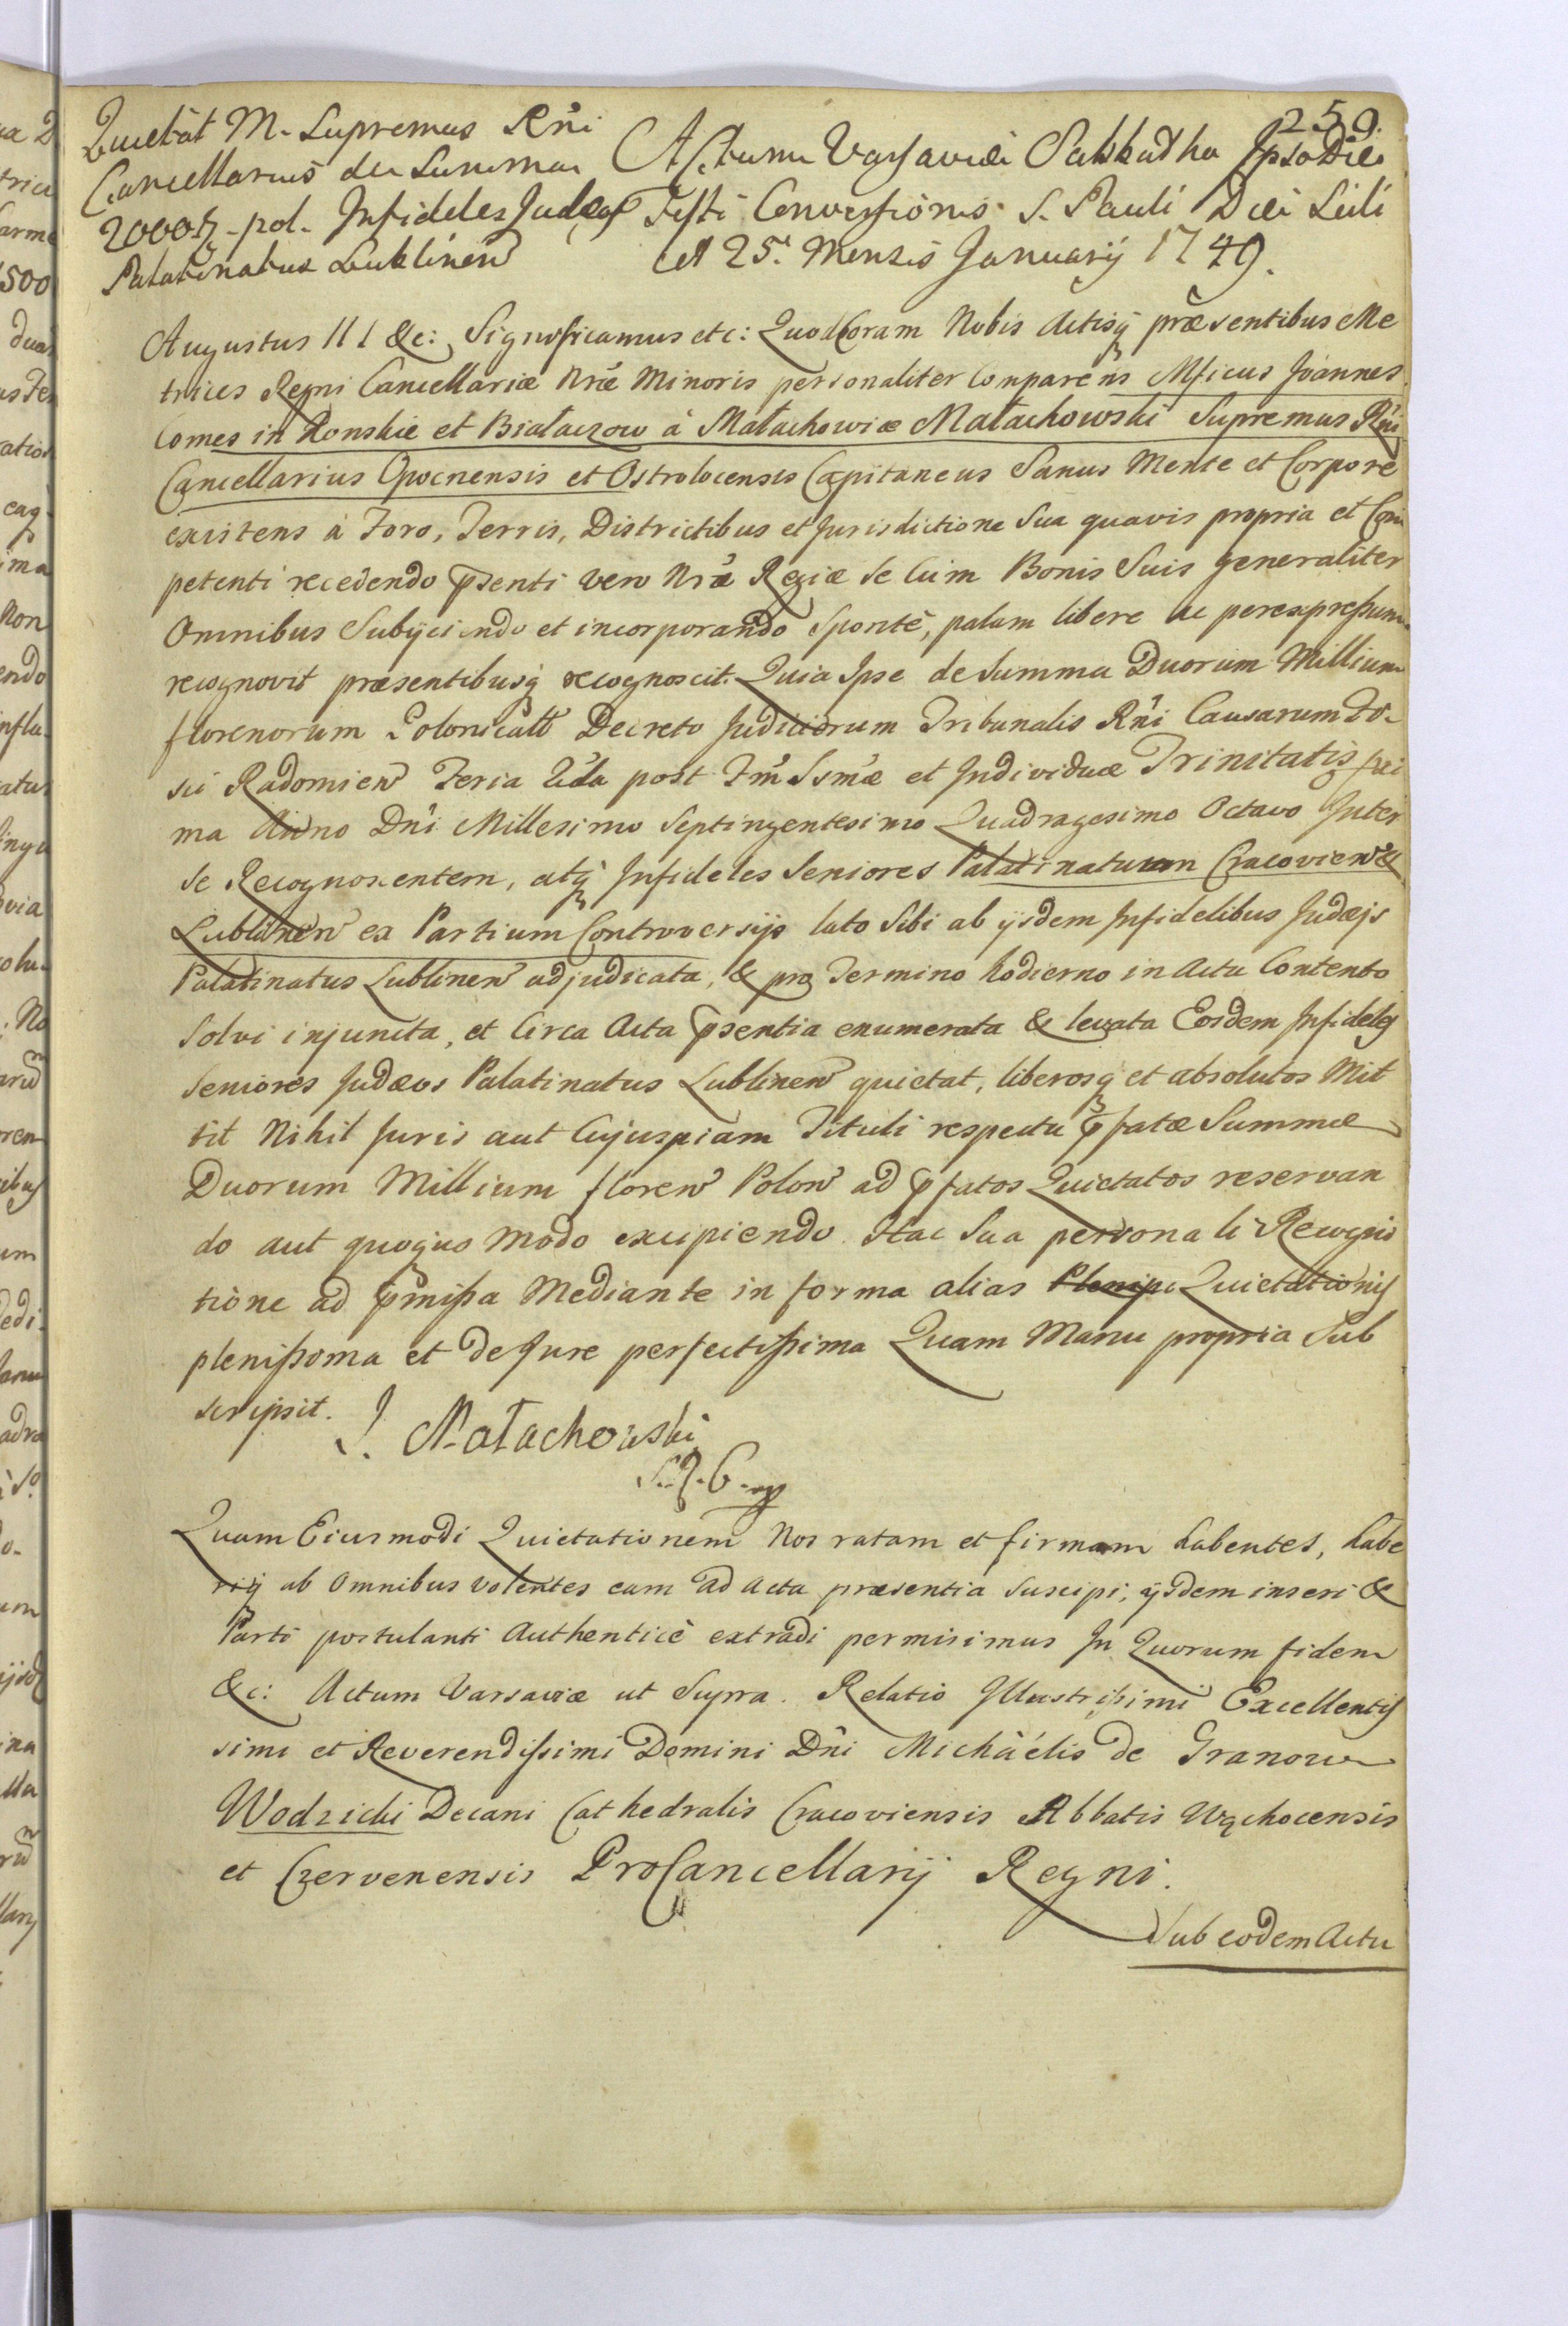 259.
Quietat M. Supremus Rńi
Cancellarius de Summa
2000 fl. pol. Infideles Judæos
Palatinatus Lublinen
Actum Varsaviæ Sabbatho Ipso Die
Festi Conversionis S. Pauli Diei Scili
et 25. Mensis Januarij 1749.
Augustus III &c: Significamus etc: Quod Coram Nobis Actisq præsentibus Me
trices Regni Cancellariæ Nrae Minoris personaliter Comparens Mficus Joannes
Comes in Konskie et Białaczow à Małachowice Małachowski Supremus Rńi
Cancellarius Opocnensis et Ostrolocensis Capitaneus Sanus Mente et Corpore
existens à Foro, Terris, Districtibus et Jurisdictione Sua quavis propria et Com
petenti recedendo p̃senti vero Nrae Regiæ se cum Bonis Suis generaliter
Omnibus Subijciendo et incorporando Spontè, palam libere ac perexpreßum
recognovit præsentibusq recognoscit. Quia Ipse de Summa Duorum Millium
florenorum Polonicall Decreto Judiciorum Tribunalis Rńi Causarum Fo-
sii Radomien Feria 2da post Fm̃ Ssmæ et Individuæ Trinitatis pri
ma Anno Dńi Millesimo Septingentesimo Quadragesimo Octavo Inter
se Recognoscentem, atq Infideles Seniores Palatinatuum Cracovien &
Lublinen ex Partium Controversijs lato Sibi ab ijsdem Infidelibus Judæis
Palatinatus Lublinen adjudicata, & pro Termino hodierno in Actu Contento
Solvi injuncta, et Circa Acta p̃sentia enumerata & levata Eosdem Infideles
Seniores Judæos Palatinatus Lublinen quietat, liberosq et absolutos Mit
tit Nihil Juris aut Cujuspiam Tituli respectu p̃fatæ Summæ
Duorum Millium floren Polon ad p̃fatos Quietatos reservan
do aut quoquo modo excipiendo. Hac Sua personali Recogni
tione ad p̃mißa Mediante in forma alias Plenipo Quietationis
plenißoma et de Jure perfectißima Quam Manu propria Sub
scripsit.
J. Małachowski
S. R. C. mp
Quam Eiusmodi Quietationem Nos ratam et firmam habentes, habe
riq ab Omnibus volentes eam ad Acta præsentia suscipi, ijsdem inseri &
Parti postulanti Authenticè extradi permisimus In Quorum fidem
&c: Actum Varsaviæ ut Supra. Relatio Illustrißimi Excellentis
simi et Reverendissimi Domini Dńi Michaëlis de Granow
Wodzicki Decani Cathedralis Cracoviensis Abbatis Wąchocensis
et Czervenensis ProCancellarij Regni.
Sub eodem Actu